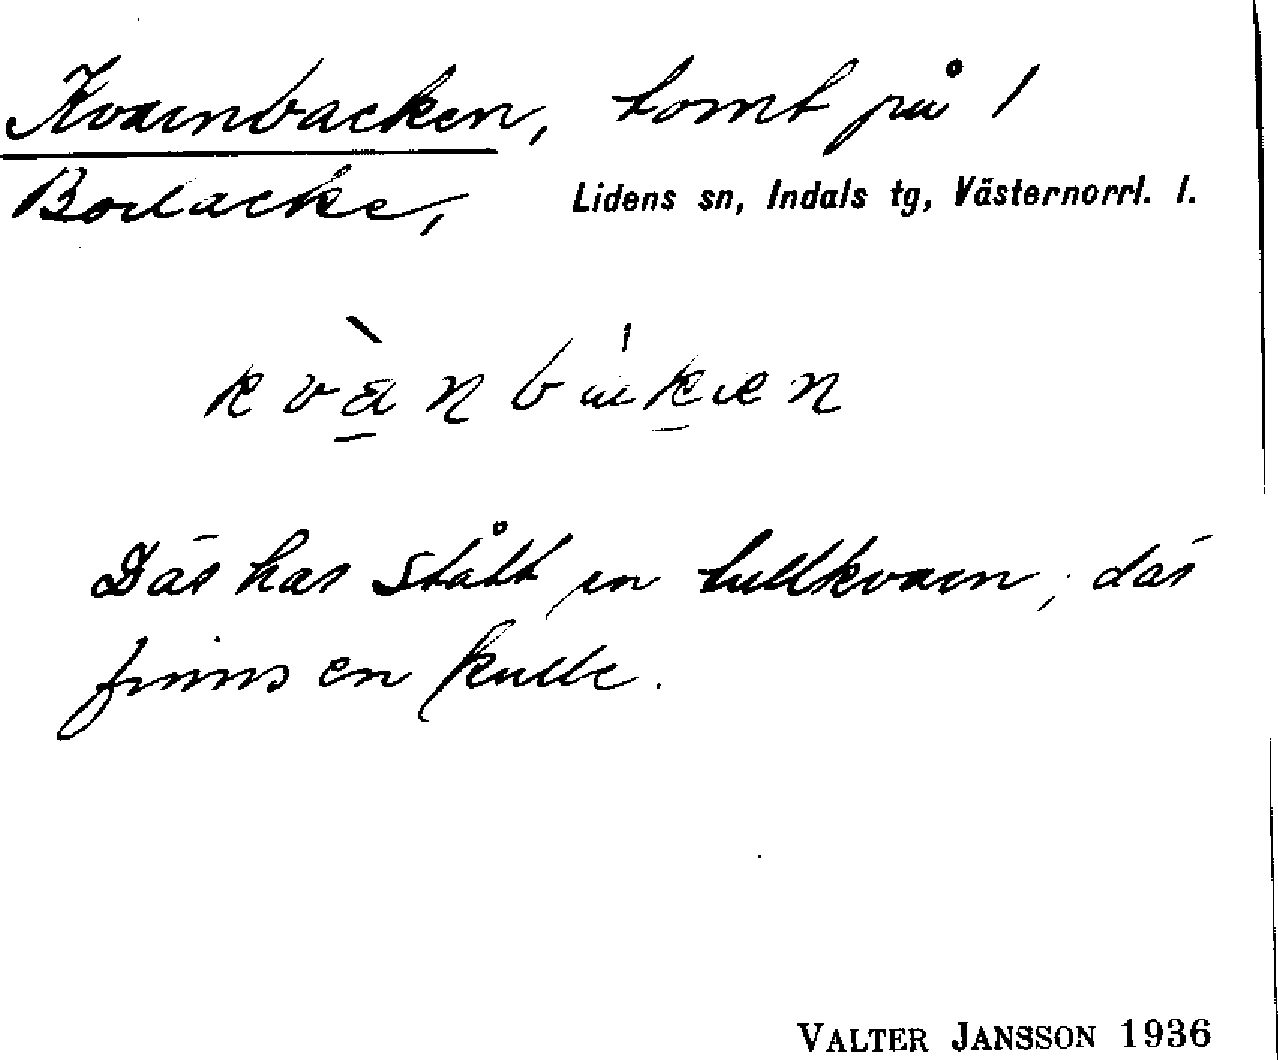 Kvarnbacken, tomt på 1
Boelacke, Lidens sn, Indals tg, Västernorrl. l.
Där har stått en tullkvarn, där
finns en kulle.
VALTER JANSSON 1936